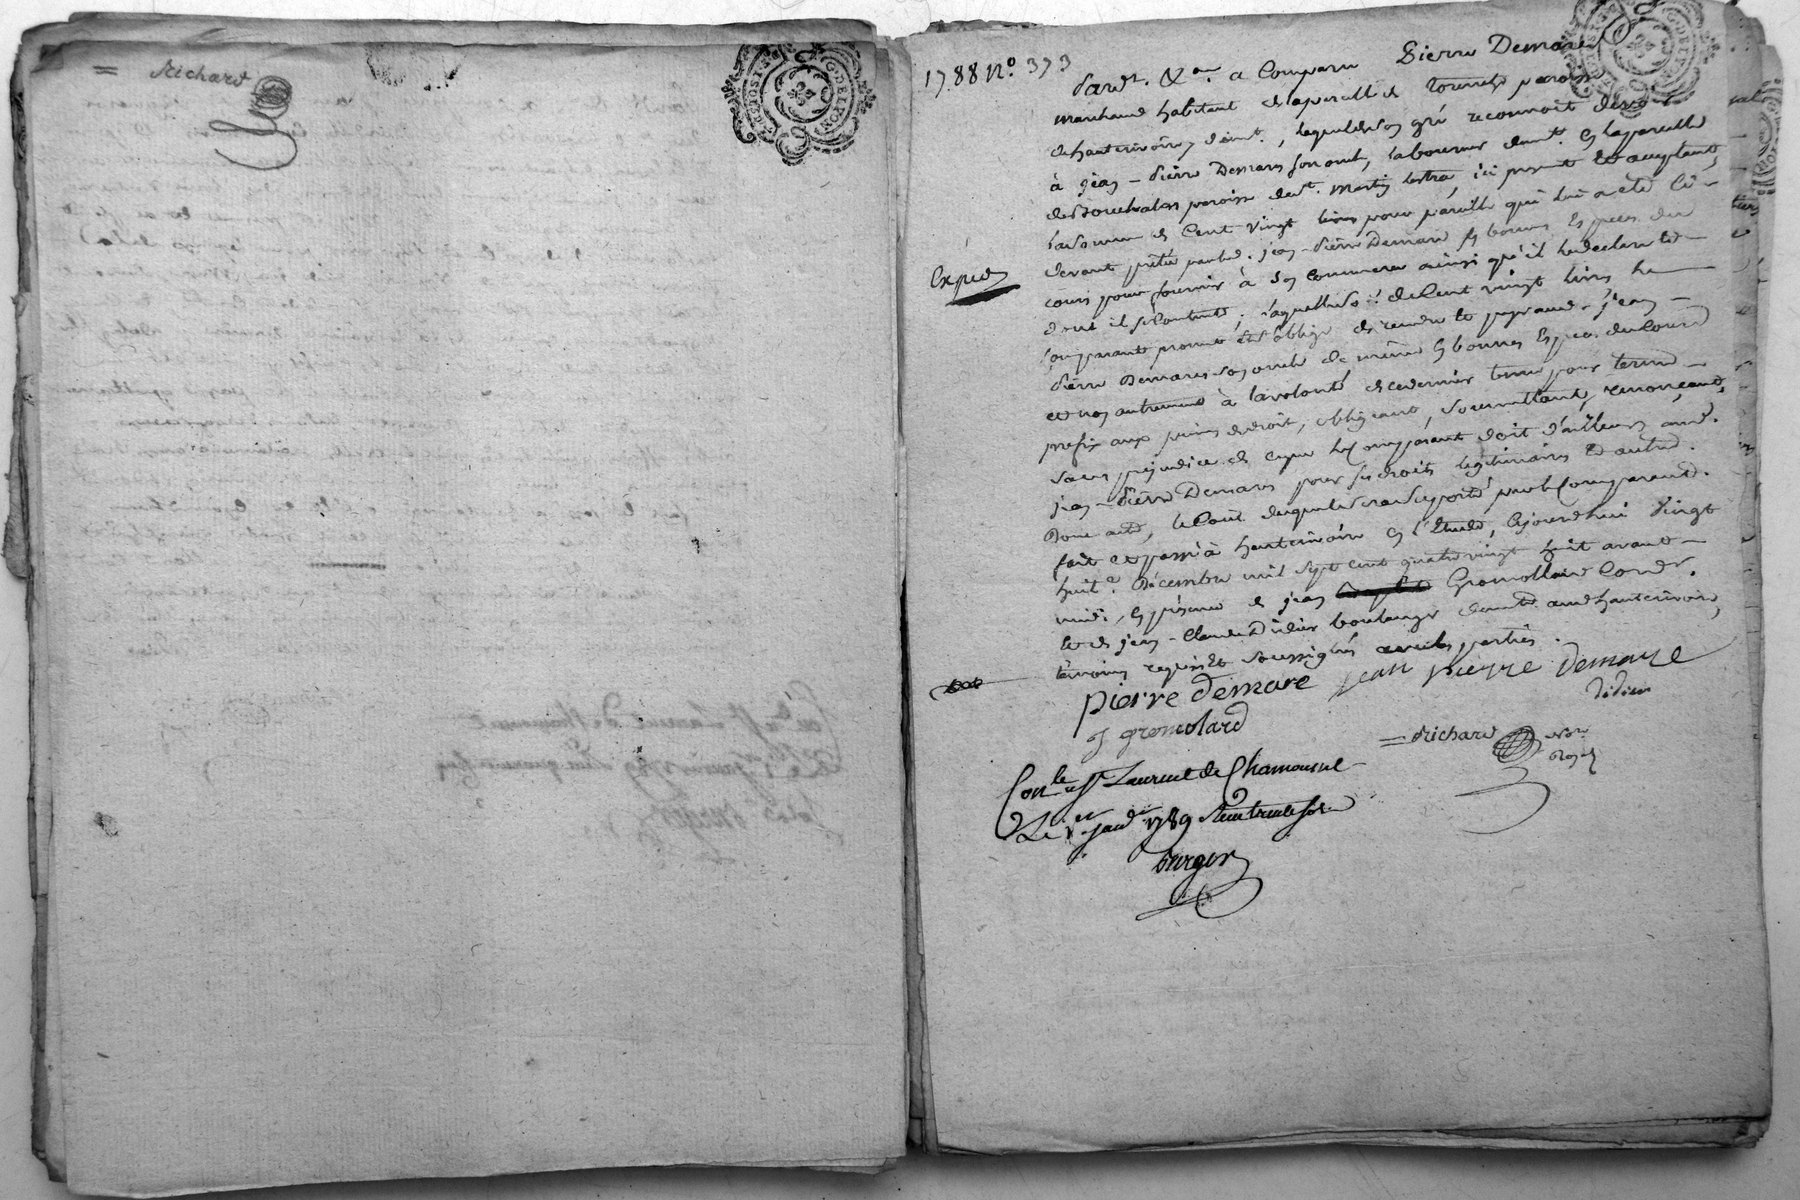 = Richard
G. DE LYON
1788 N.° 373
Pard.t &a. a Comparu Pierre Demare
marchand habitant de la parcelle de paroisse
de hauterivoire, d'une p.t, lequel de son gré reconnoit devoir
à jean-Pierre Demare son oncle, laboureur dem.t en la parcelle
de Souchalas paroisse de S.t Martin lestra, ici présent et acceptant,
la somme de Cent vingt livres pour pareille qui lui a été ci-
devant prêtée par led. jean-Pierre Demare en bonnes Espèces du
Expéd
cours pour fournir à son commerce ainsi qu'il le déclare et
dont il se contente; laquelle so.e de Cent vingt livres le
comparant promet et s'oblige de rendre et payer aud. jean-
Pierre Demare son oncle de même en bonnes Espèces du Cours
et non autrement à la volonté de ce dernier tenu pour terme
prefix aux peines de droit, obligeant, soumettant, renonçant,
sans préjudice de ce que le Comparant doit d'ailleurs aud.
jean-Pierre Demare pour ses droits légitimaires Et autre.
Dont acte, le Coût duquel sera supporté par le Comparant.
fait et passé à hauterivoire en l'Etude, Cejourd'hui vingt
huit.e Décembre mil sept cent quatre vingt huit avant-
midi, en présence de jean Gromollard Cord.r
et de jean-Claude Didier boulanger dem.t aud. hauterivoire,
témoins requis Et soussignés avec les parties.
pierre demare jean pierre demare
j gromolard Didier
= Richard Not.re Royal
Con.lé à S.t Laurent de Chamousset
Le 1.er janv.r 1789 Reçu trente sols
burger